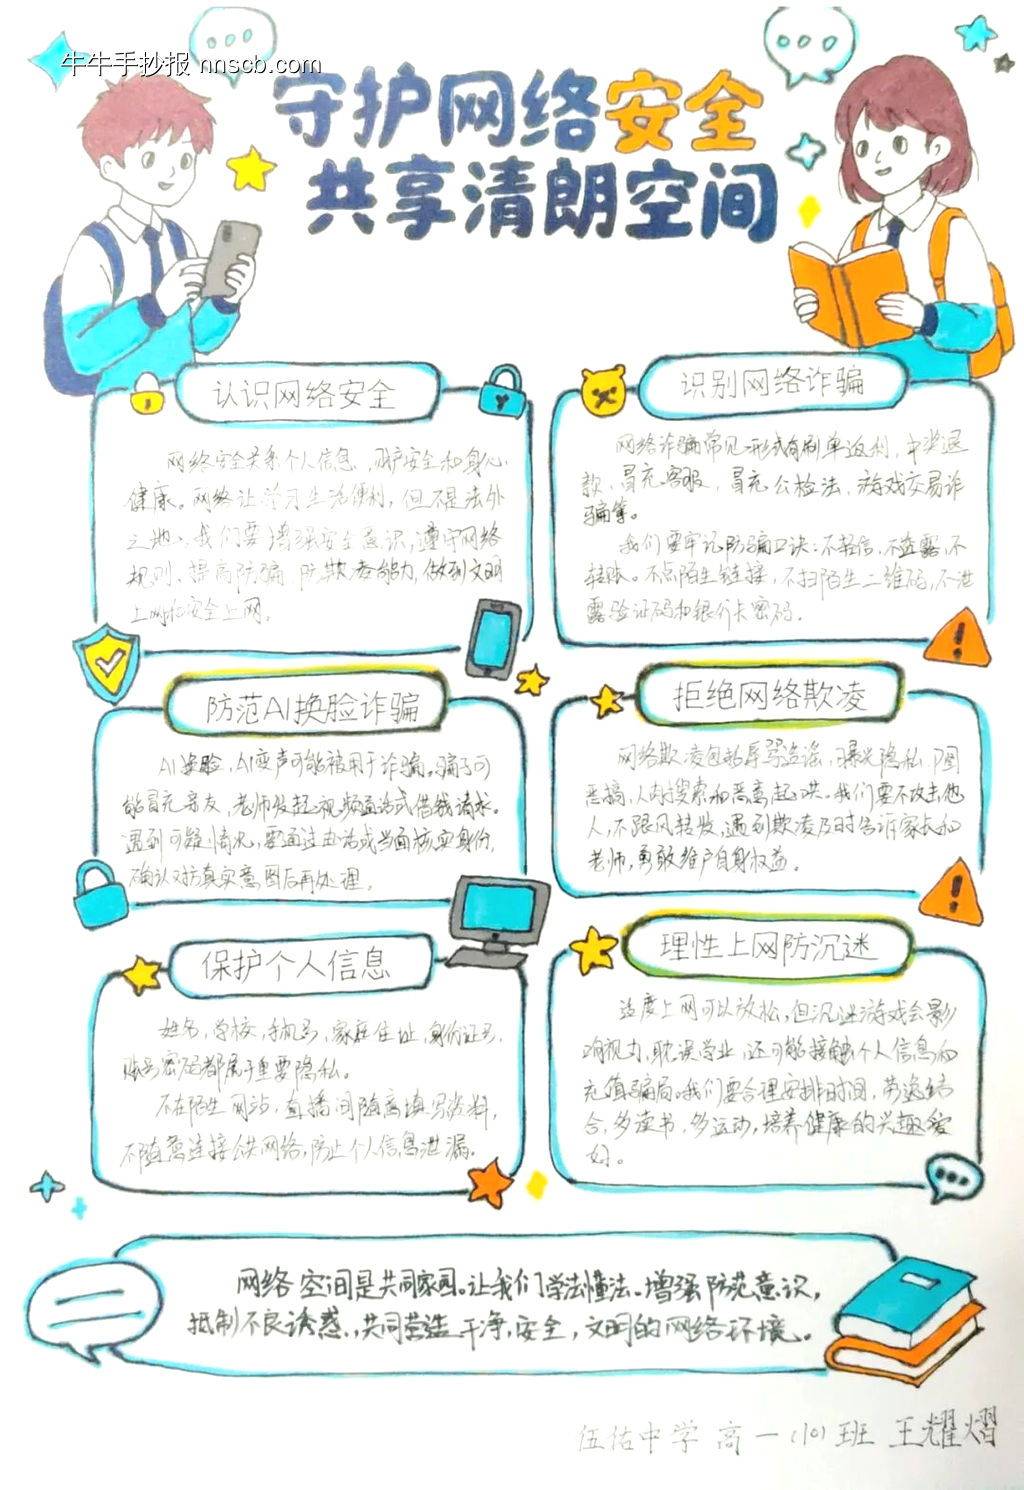 牛牛手抄报 nnscb.com
守护网络安全
共享清朗空间
认识网络安全
网络安全关系个人信息、财产安全和身心
健康。网络让学习生活便利，但不是法外
之地。我们要增强安全意识，遵守网络
规则、提高防骗 防欺凌能力，做到文明
上网和安全上网。
识别网络诈骗
网络诈骗常见形式有刷单返利，中奖退
款，冒充客服，冒充公检法，游戏交易诈
骗等。
我们要牢记防骗口诀：不轻信，不透露，不
转账。不点陌生链接，不扫陌生二维码，不泄
露验证码和银行卡密码。
防范AI换脸诈骗
AI换脸，AI变声可能被用于诈骗。骗子可
能冒充亲友，老师发起视频通话或借钱请求。
遇到可疑情况，要通过电话或当面核实身份，
确认对方真实意图后再处理。
拒绝网络欺凌
网络欺凌包括辱骂造谣，曝光隐私，P图
恶搞，人肉搜索和恶意起哄。我们要不攻击他
人，不跟风转发，遇到欺凌及时告诉家长和
老师，勇敢维护自身权益。
保护个人信息
姓名，学校，手机号，家庭住址，身份证号，
账号密码都属于重要隐私。
不在陌生网站，直播间随意填写资料，
不随意连接公共网络，防止个人信息泄漏。
理性上网防沉迷
适度上网可以放松，但沉迷游戏会影
响视力，耽误学业，还可能接触个人信息和
充值骗局。我们要合理安排时间，劳逸结
合，多读书，多运动，培养健康的兴趣爱
好。
网络空间是共同家园。让我们学法懂法。增强防范意识，
抵制不良诱惑，共同营造干净，安全，文明的网络环境。
伍佑中学 高一（10）班 王耀熠